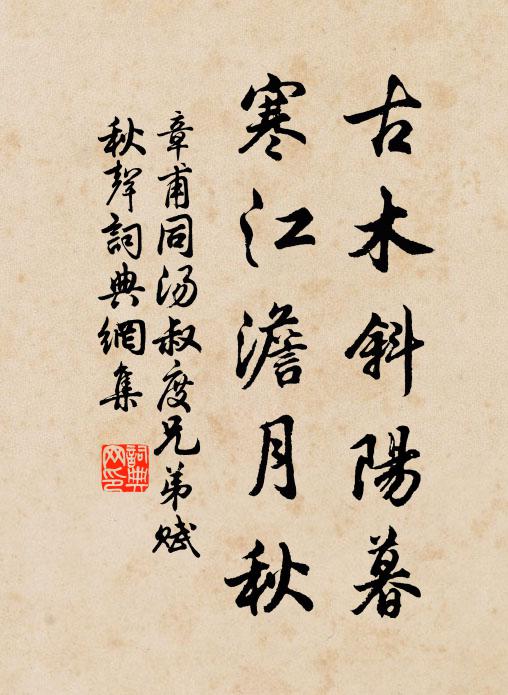 古木斜陽暮
寒江澹月秋
章甫同汤叔度兄弟赋
秋聲詞典網集
詞典网印